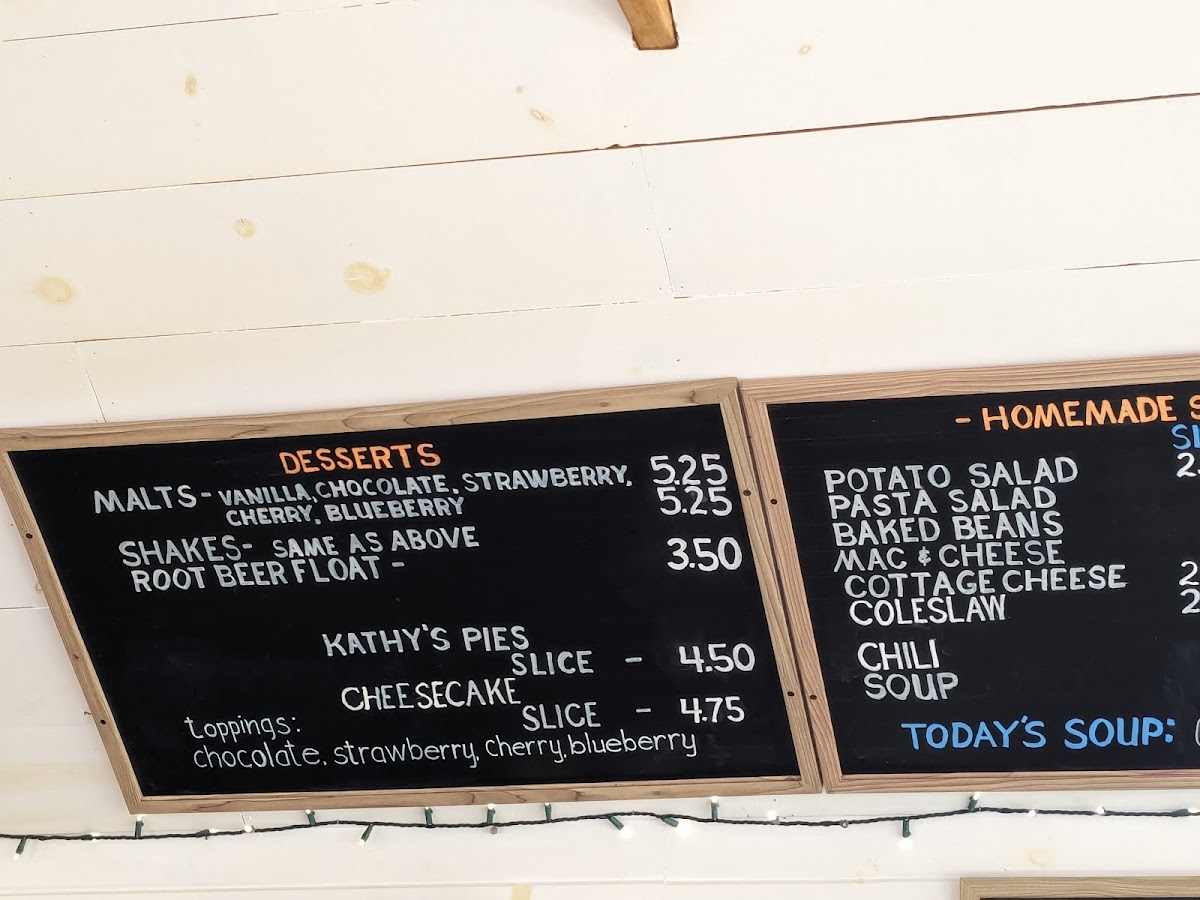 DESSERTS
MALTS - VANILLA, CHOCOLATE, STRAWBERRY, 5.25
CHERRY, BLUEBERRY 5.25
SHAKES- SAME AS ABOVE
ROOT BEER FLOAT - 3.50
KATHY'S PIES
SLICE - 4.50
CHEESECAKE
SLICE - 4.75
toppings:
chocolate, strawberry, cherry, blueberry
- HOMEMADE
POTATO SALAD
PASTA SALAD
BAKED BEANS
MAC & CHEESE
COTTAGE CHEESE
COLESLAW
CHILI
SOUP
TODAY'S SOUP: